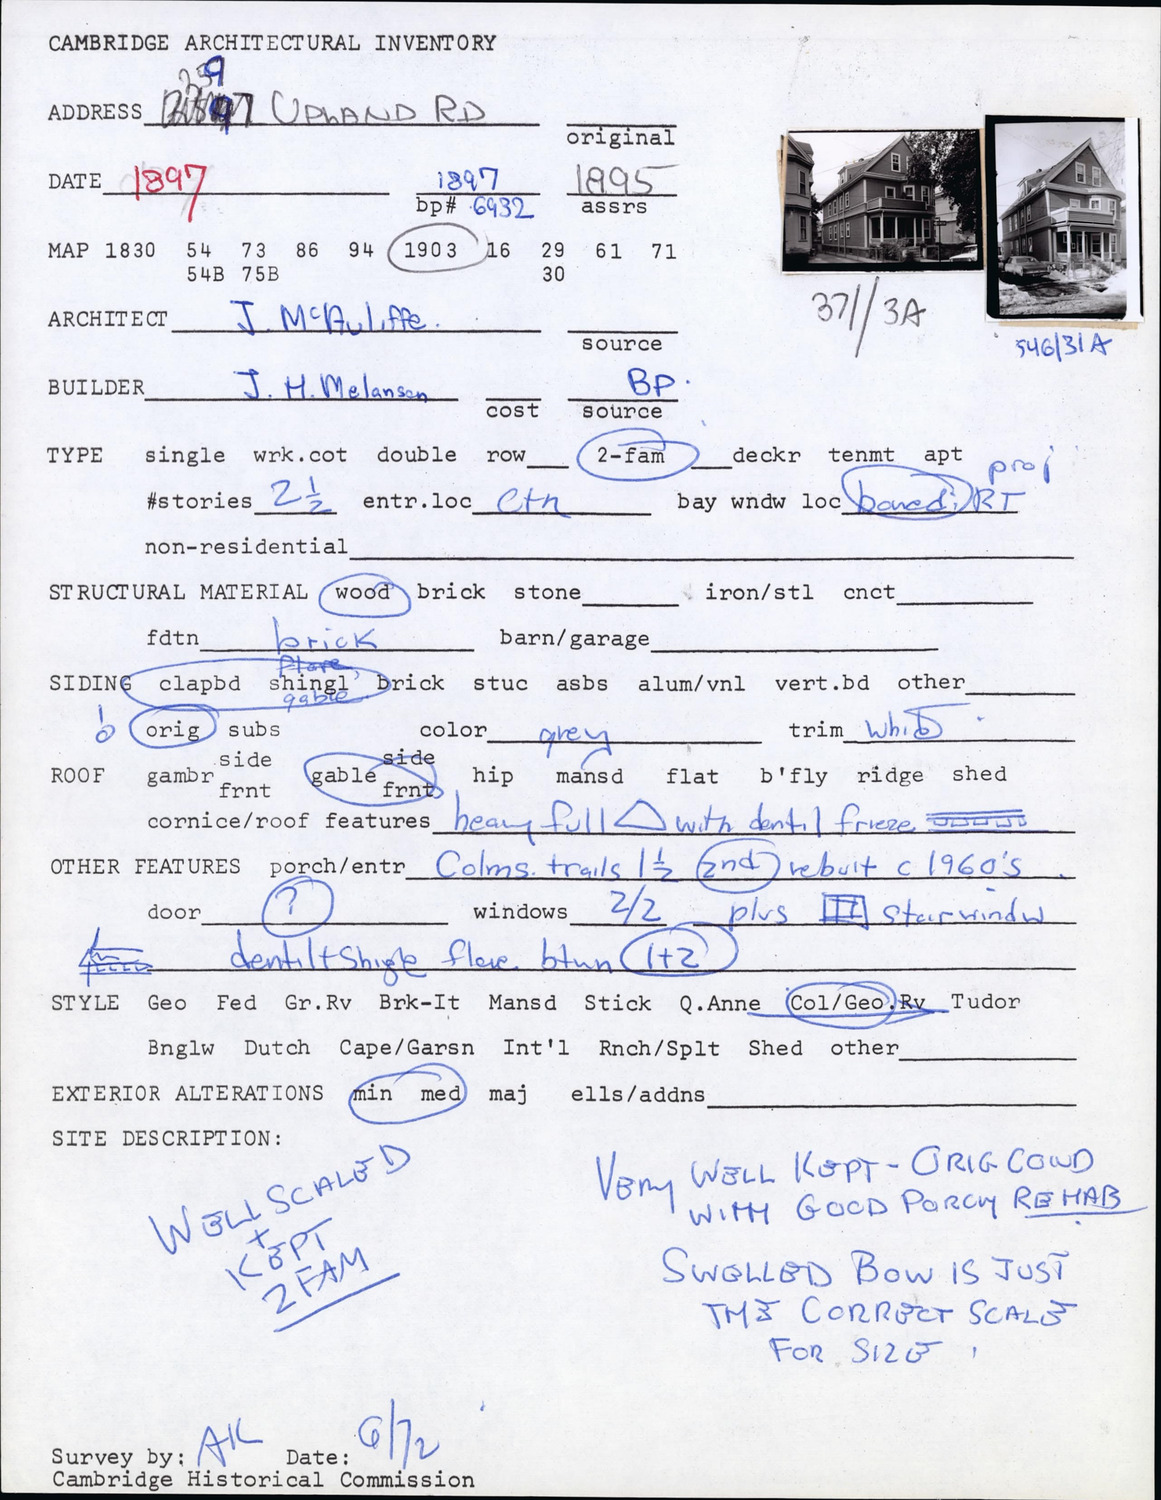 CAMBRIDGE ARCHITECTURAL INVENTORY
259
ADDRESS UPLAND RD
original
DATE 1897 1897 1895
bp# 6932 assrs
MAP 1830 54 73 86 94 1903 16 29 61 71
54B 75B 30
37//3A
546/31A
ARCHITECT J. McAuliffe.
source
BUILDER J. H. Melanson BP.
cost source
TYPE single wrk.cot double row 2-fam deckr tenmt apt
proj
#stories 2 1/2 entr.loc ctn bay wndw loc RT
non-residential
STRUCTURAL MATERIAL wood brick stone iron/stl cnct
fdtn brick barn/garage
flare
SIDING clapbd shingl brick stuc asbs alum/vnl vert.bd other
gable
! orig subs color grey trim white
side side
ROOF gambr gable hip mansd flat b'fly ridge shed
frnt frnt
cornice/roof features heavy full △ with dentil frieze
OTHER FEATURES porch/entr Colms. trails 1 1/2 2nd rebuit c 1960's
door ? windows 2/2 plus stairwindw
dentil + Shigle flare. btwn 1+2
STYLE Geo Fed Gr.Rv Brk-It Mansd Stick Q.Anne Col/Geo.Rv Tudor
Bnglw Dutch Cape/Garsn Int'l Rnch/Splt Shed other
EXTERIOR ALTERATIONS min med maj ells/addns
SITE DESCRIPTION:
WELL SCALED
+
KEPT
2 FAM
VERY WELL KEPT - ORIG COND
WITH GOOD PORCH REHAB
SWELLED BOW IS JUST
THE CORRECT SCALE
FOR SIZE
Survey by: AK Date: 6/72
Cambridge Historical Commission